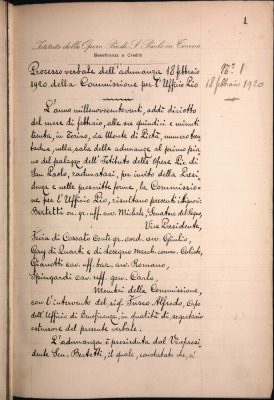 1
Istituto delle Opere Pie di S. Paolo in Torino
Beneficenza e Credito
Processo verbale dell'adunanza 18 febbraio
1920 della Commissione per l'Ufficio Pio
N.° 1
18 febbraio 1920
L'anno millenovecentoventi, addì diciotto
del mese di febbraio, alle ore quindici e minuti
trenta, in Torino, via Monte di Pietà, numero
nella sala delle adunanze al primo pia
no del palazzo dell'Istituto delle Opere Pie di
San Paolo, radunatasi, per invito della Presi
denza e nelle prescritte forme, la Commissio
ne per l'Ufficio Pio, risultano presenti i signori:
Bertetti on. gr. uff. avv. Michele, Senatore del Regno,
Vice Presidente,
di Cossato Conte gr. cord. avv. Giulio,
Gay di Quarti e di
Gianotti cav. uff. avv. Romano,
Spingardi cav. uff. gen. Carlo,
Membri della Commissione,
con l'intervento del sig. Fusco Alfredo, Capo
dell'Ufficio di Beneficenza, in qualità di segretario
estensore del presente verbale.
L'adunanza è presieduta dal Vicepresi
dente Sen. Bertetti, il quale, constatato che, a